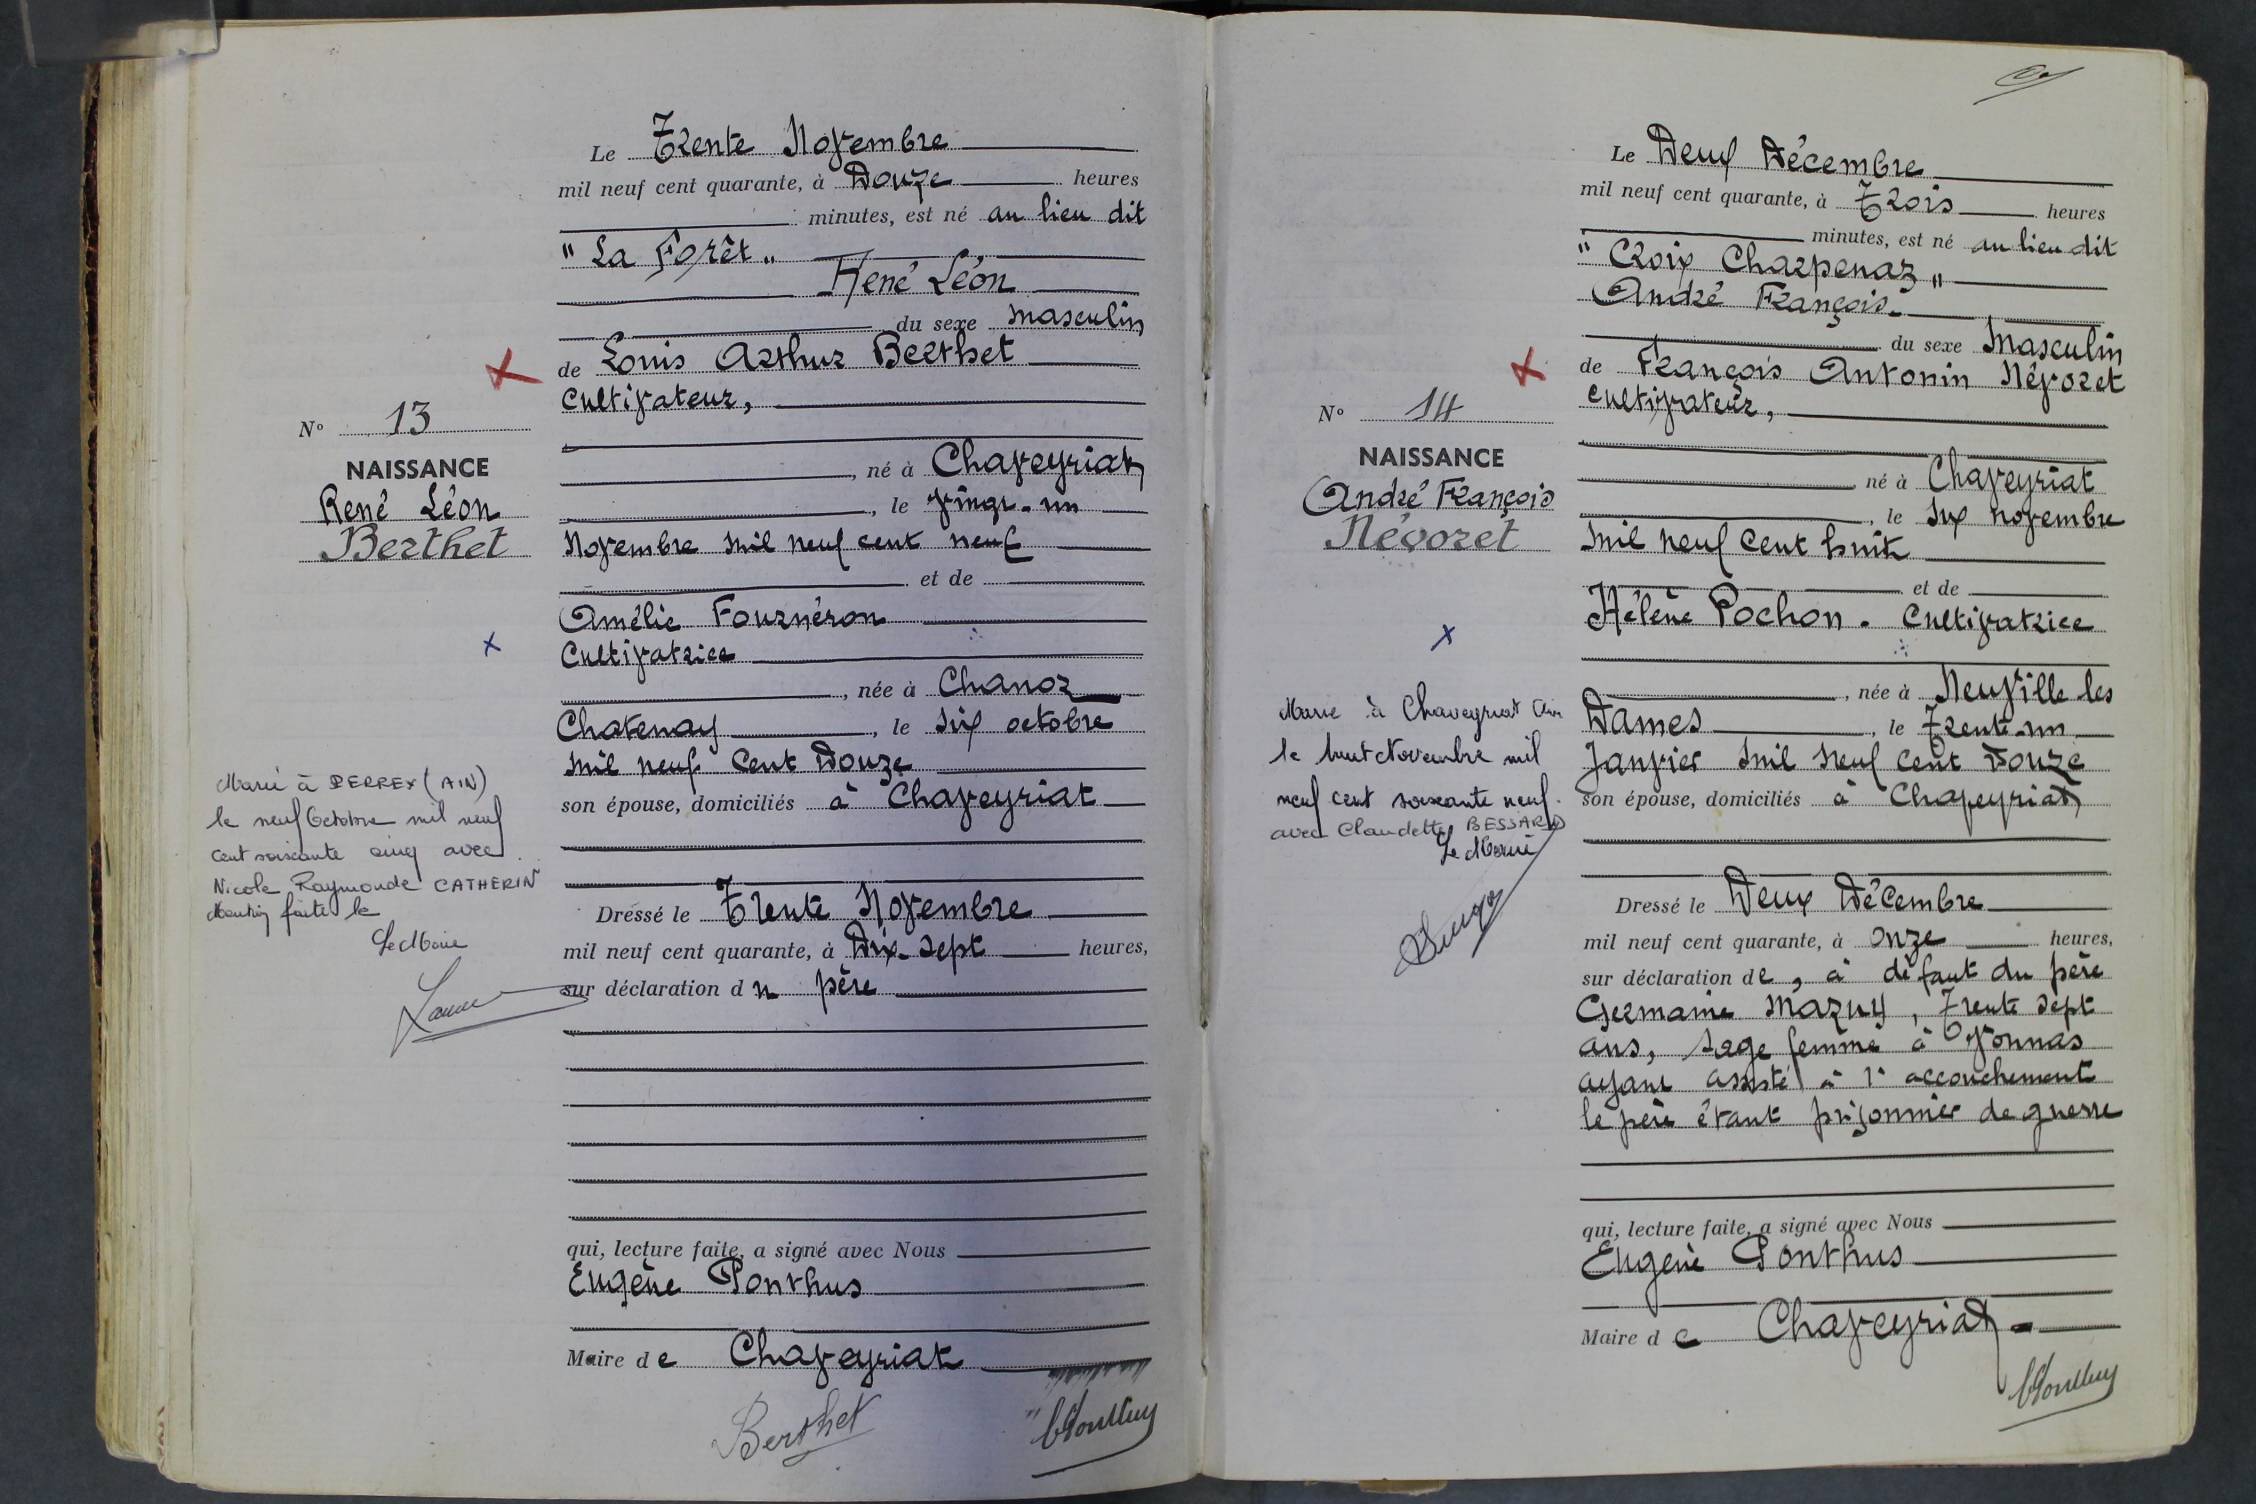 Le Trente Novembre
mil neuf cent quarante, à Douze heures
minutes, est né au lieu dit
" La Forêt "
René Léon
du sexe masculin
de Louis Arthur Berthet
Cultivateur,
né à Chaveyriat
, le vingt-un
Novembre mil neuf cent neuf
et de
Amélie Fournéron
Cultivatrice
, née à Chanoz
Chatenay, le six octobre
mil neuf cent Douze
son épouse, domiciliés à Chaveyriat
Dressé le Trente Novembre
mil neuf cent quarante, à Dix-sept heures,
sur déclaration du père
qui, lecture faite, a signé avec Nous
Eugène Ponthus
Maire de Chaveyriat
Berthet
N° 13
NAISSANCE
René Léon
Berthet
Marié à PERREX (AIN)
le neuf Octobre mil neuf
cent soixante cinq avec
Nicole Raymonde CATHERIN
Mention faite le
Le Maire
Le Deux Décembre
mil neuf cent quarante, à Trois heures
minutes, est né au lieu dit
" Croix Charpenaz "
André François.
du sexe Masculin
de François Antonin Névoret
cultivateur,
né à Chaveyriat
, le six novembre
mil neuf cent huit
et de
Hélène Pochon. Cultivatrice
, née à Neuville les
Dames, le Trente-un
Janvier mil neuf cent Douze
son épouse, domiciliés à Chaveyriat
Dressé le Deux Décembre
mil neuf cent quarante, à onze heures,
sur déclaration de, à défaut du père
Germaine Mazuy, Trente sept
ans, sage femme à Vonnas
ayant assisté à l'accouchement
le père étant prisonnier de guerre
qui, lecture faite, a signé avec Nous
Eugène Ponthus
Maire de Chaveyriat
N° 14
NAISSANCE
André François
Névoret
Marié à Chaveyriat Ain
le huit Novembre mil
neuf cent soixante neuf
avec Claudette BESSARD
Le Maire